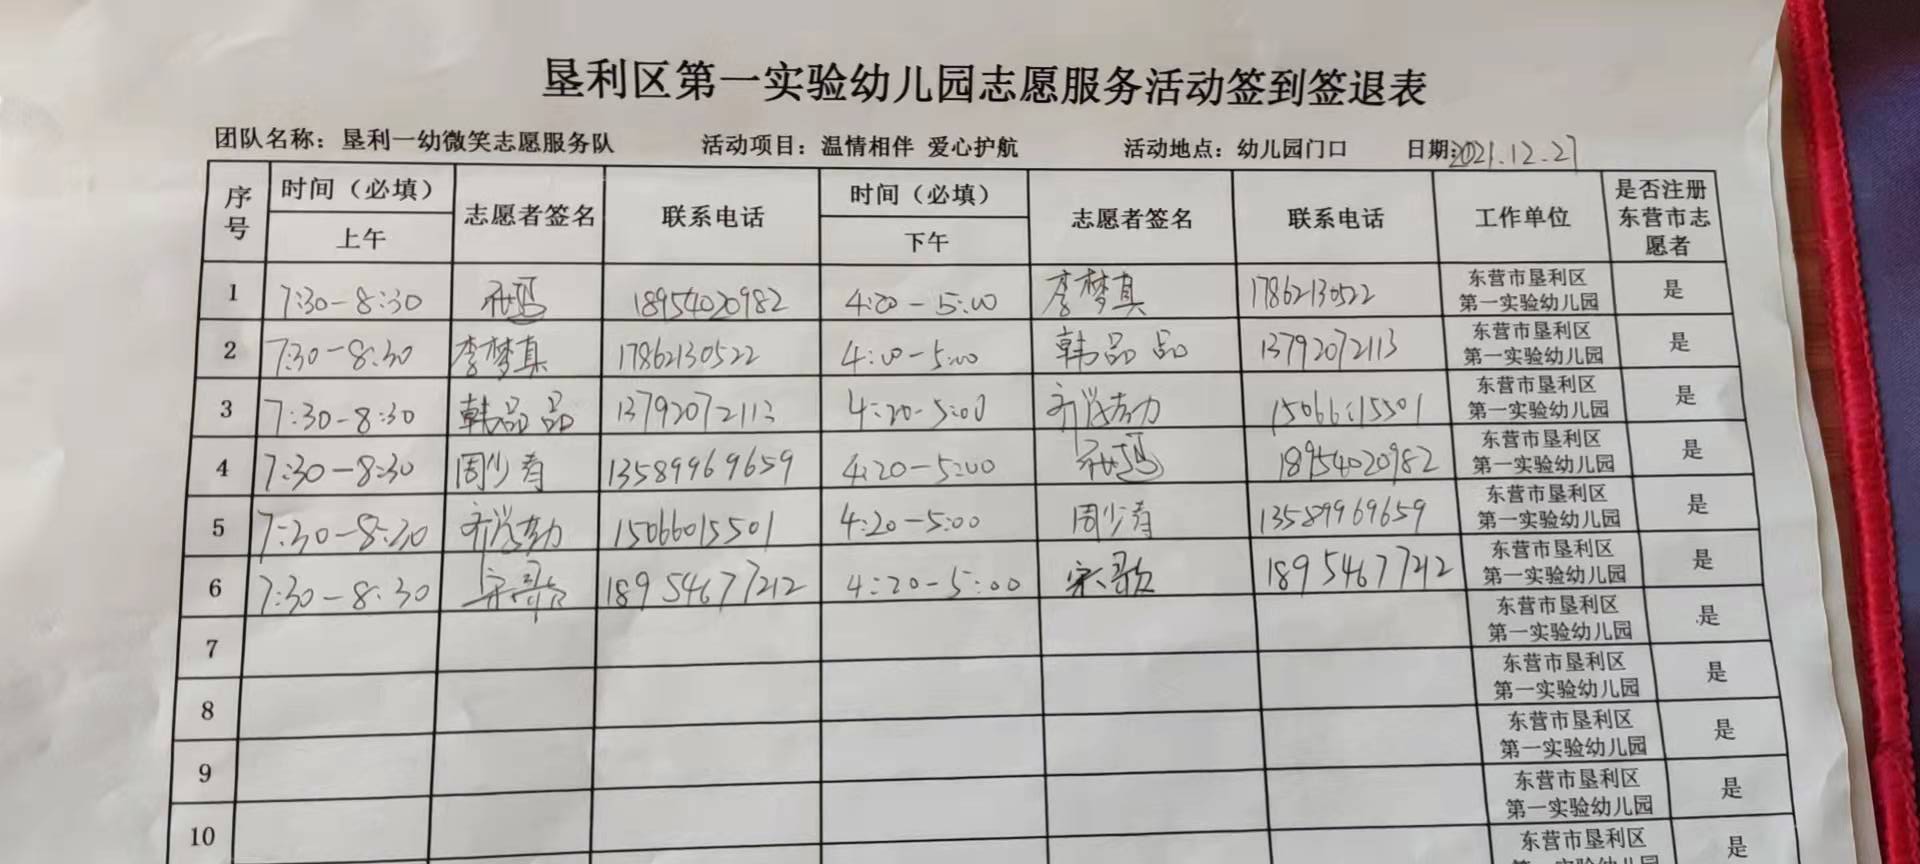 垦利区第一实验幼儿园志愿服务活动签到签退表
团队名称：垦利一幼微笑志愿服务队 活动项目：温情相伴 爱心护航 活动地点：幼儿园门口 日期：2021.12.27
序号 时间（必填）上午 志愿者签名 联系电话 时间（必填）下午 志愿者签名 联系电话 工作单位 是否注册东营市志愿者
1 7:30-8:30 18954020982 4:20-5:00 李梦真 17862130522 东营市垦利区第一实验幼儿园 是
2 7:30-8:30 李梦真 17862130522 4:00-5:00 韩品品 13792072113 东营市垦利区第一实验幼儿园 是
3 7:30-8:30 韩品品 13792072113 4:20-5:00 15066015501 东营市垦利区第一实验幼儿园 是
4 7:30-8:30 周少春 13589969659 4:20-5:00 18954020982 东营市垦利区第一实验幼儿园 是
5 7:30-8:30 15066015501 4:20-5:00 周少春 13589969659 东营市垦利区第一实验幼儿园 是
6 7:30-8:30 宋歌 18954677212 4:20-5:00 宋歌 18954677212 东营市垦利区第一实验幼儿园 是
7 东营市垦利区第一实验幼儿园 是
8 东营市垦利区第一实验幼儿园 是
9 东营市垦利区第一实验幼儿园 是
10 东营市垦利区第一实验幼儿园 是
东营市垦利区 是